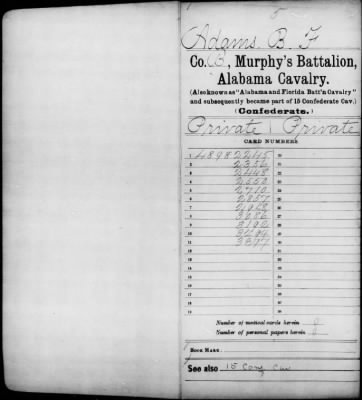 5
Adams, B F
Co. B, Murphy's Battalion,
Alabama Cavalry.
(Also known as "Alabama and Florida Batt'n Cavalry"
and subsequently became part of 15 Confederate Cav.)
(Confederate.)
Private | Private
CARD NUMBERS
1 48982245 20
2 2356 21
3 2448 22
4 2550 23
5 2710 24
6 2857 25
7 2968 26
8 3086 27
9 3192 28
10 3294 29
11 3397 30
12 31
13 32
14 33
15 34
16 35
17 36
18 37
19 38
Number of medical cards herein 0
Number of personal papers herein 0
BOOK MARK:
See also 15 Conf Cav